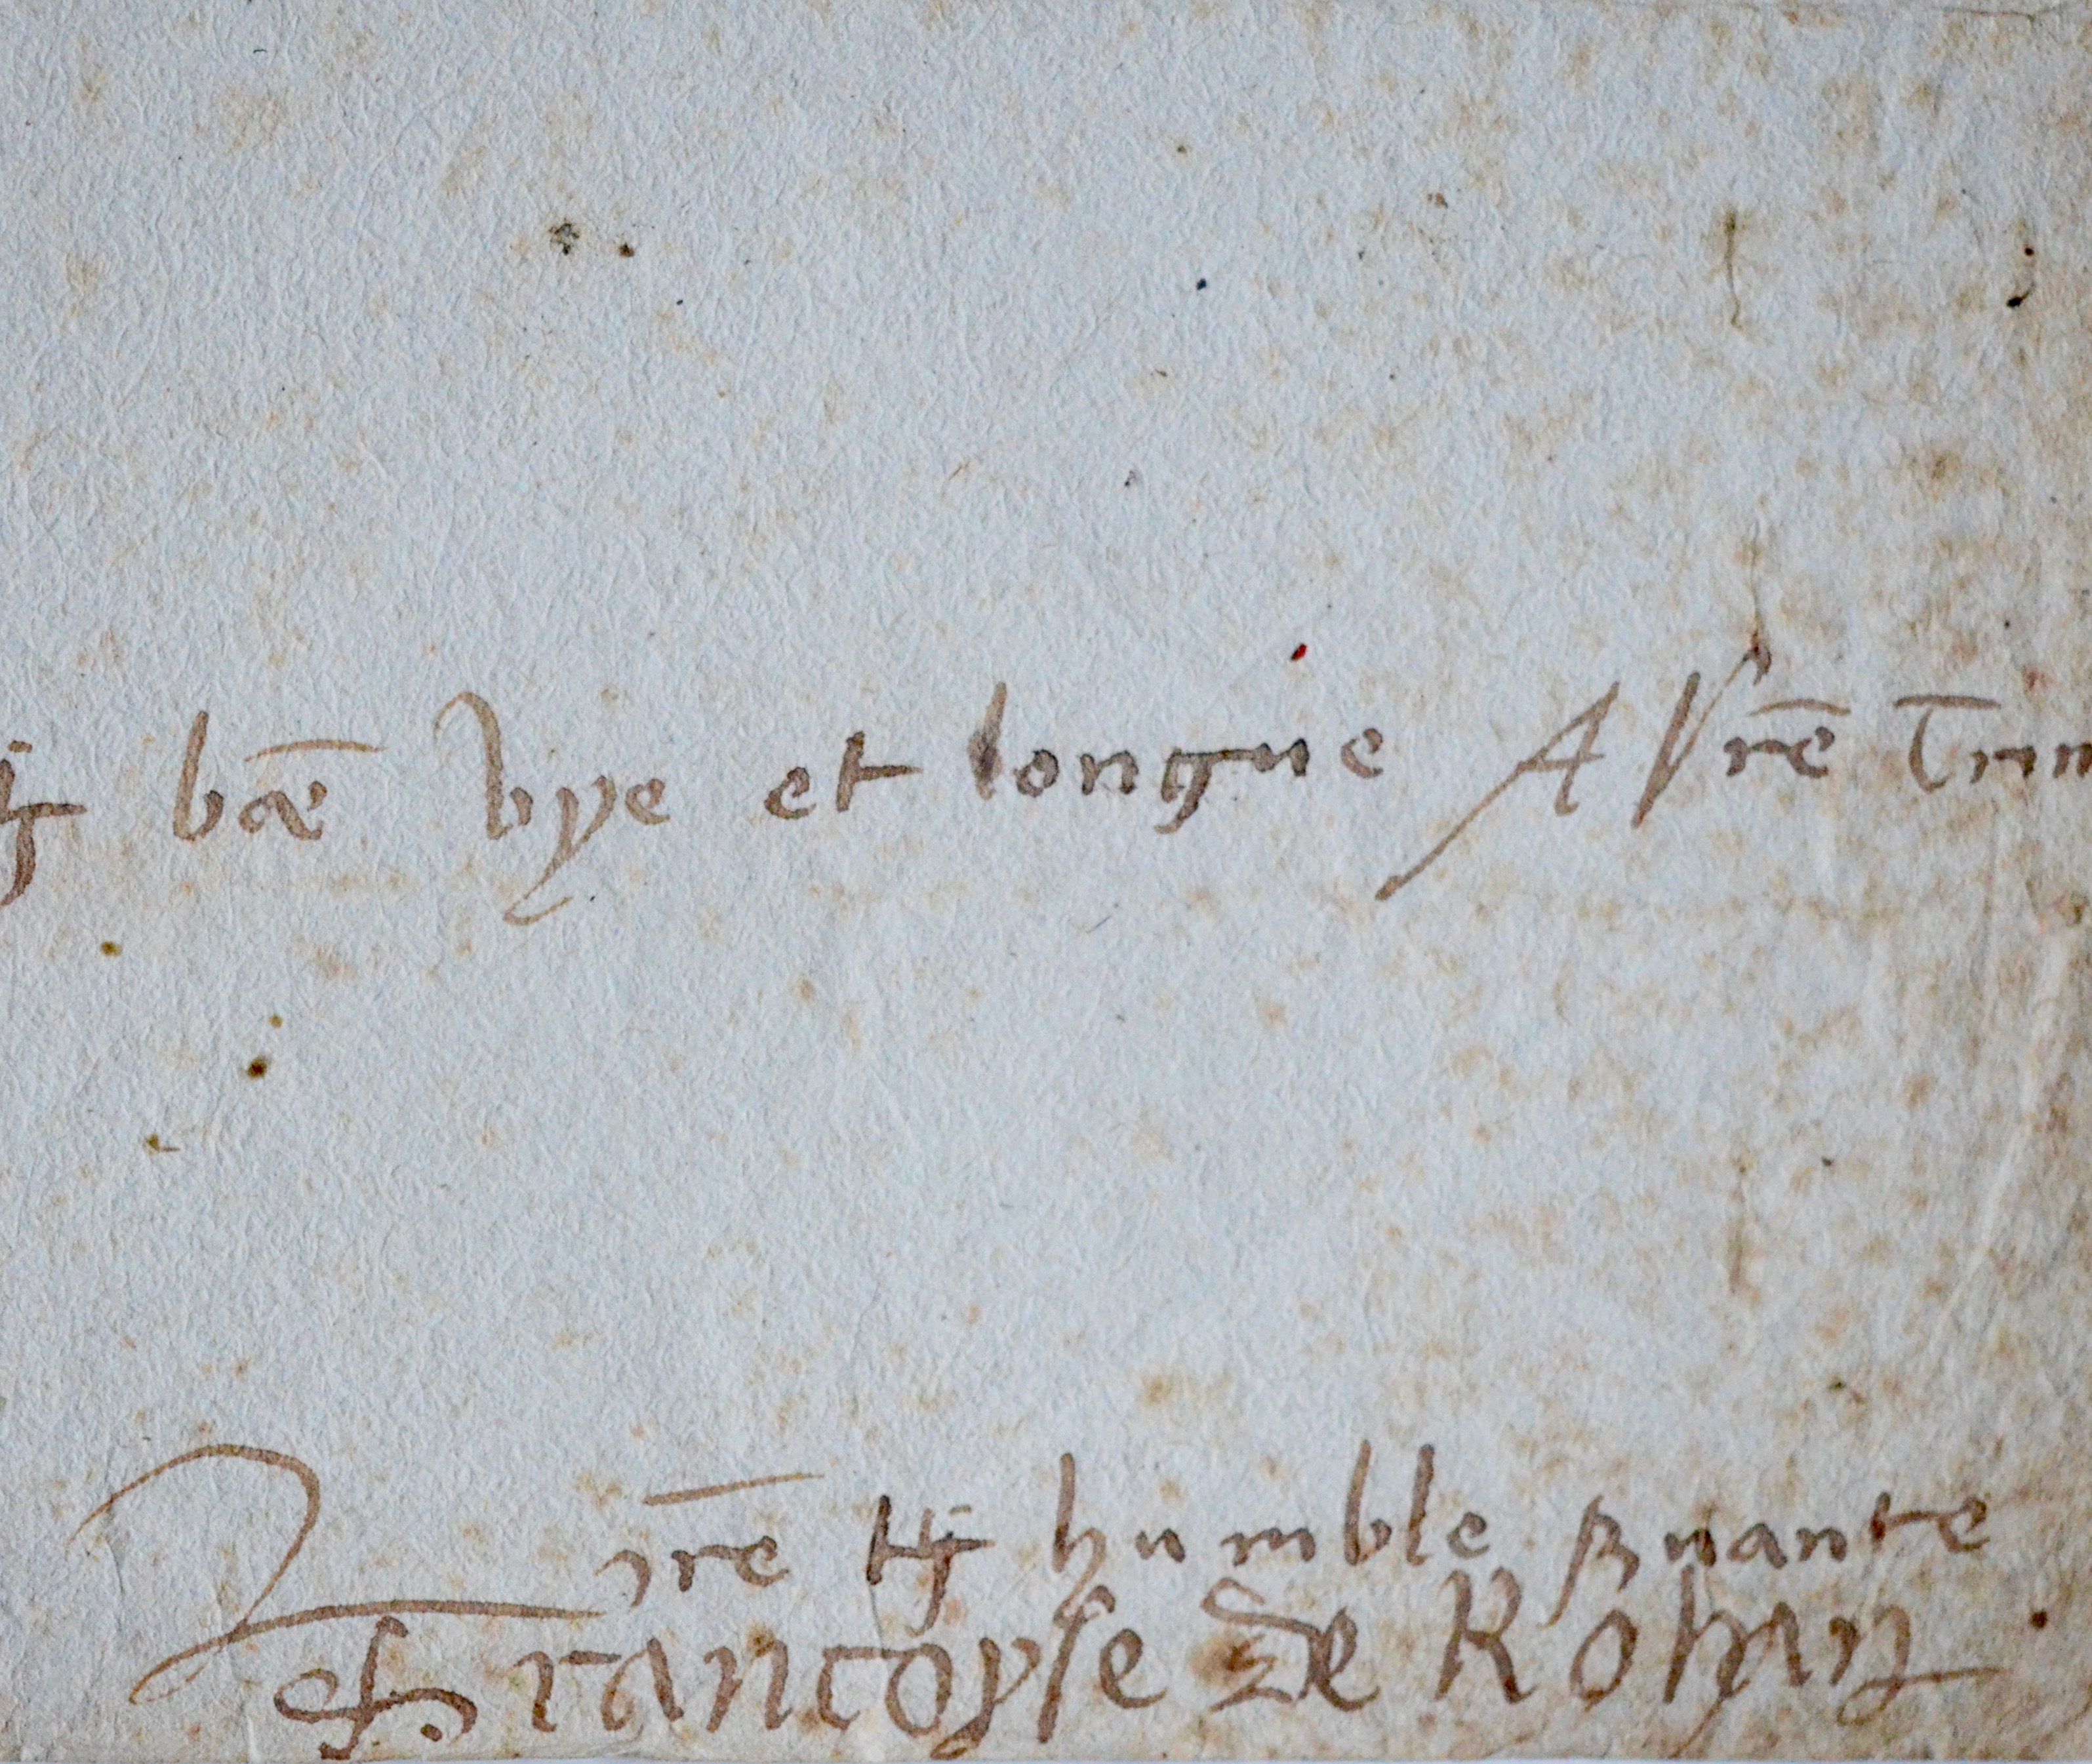 bōe vye et longue A vr̄e
vr̄e tẜ humble s̃vante
Francoyse de Rohan